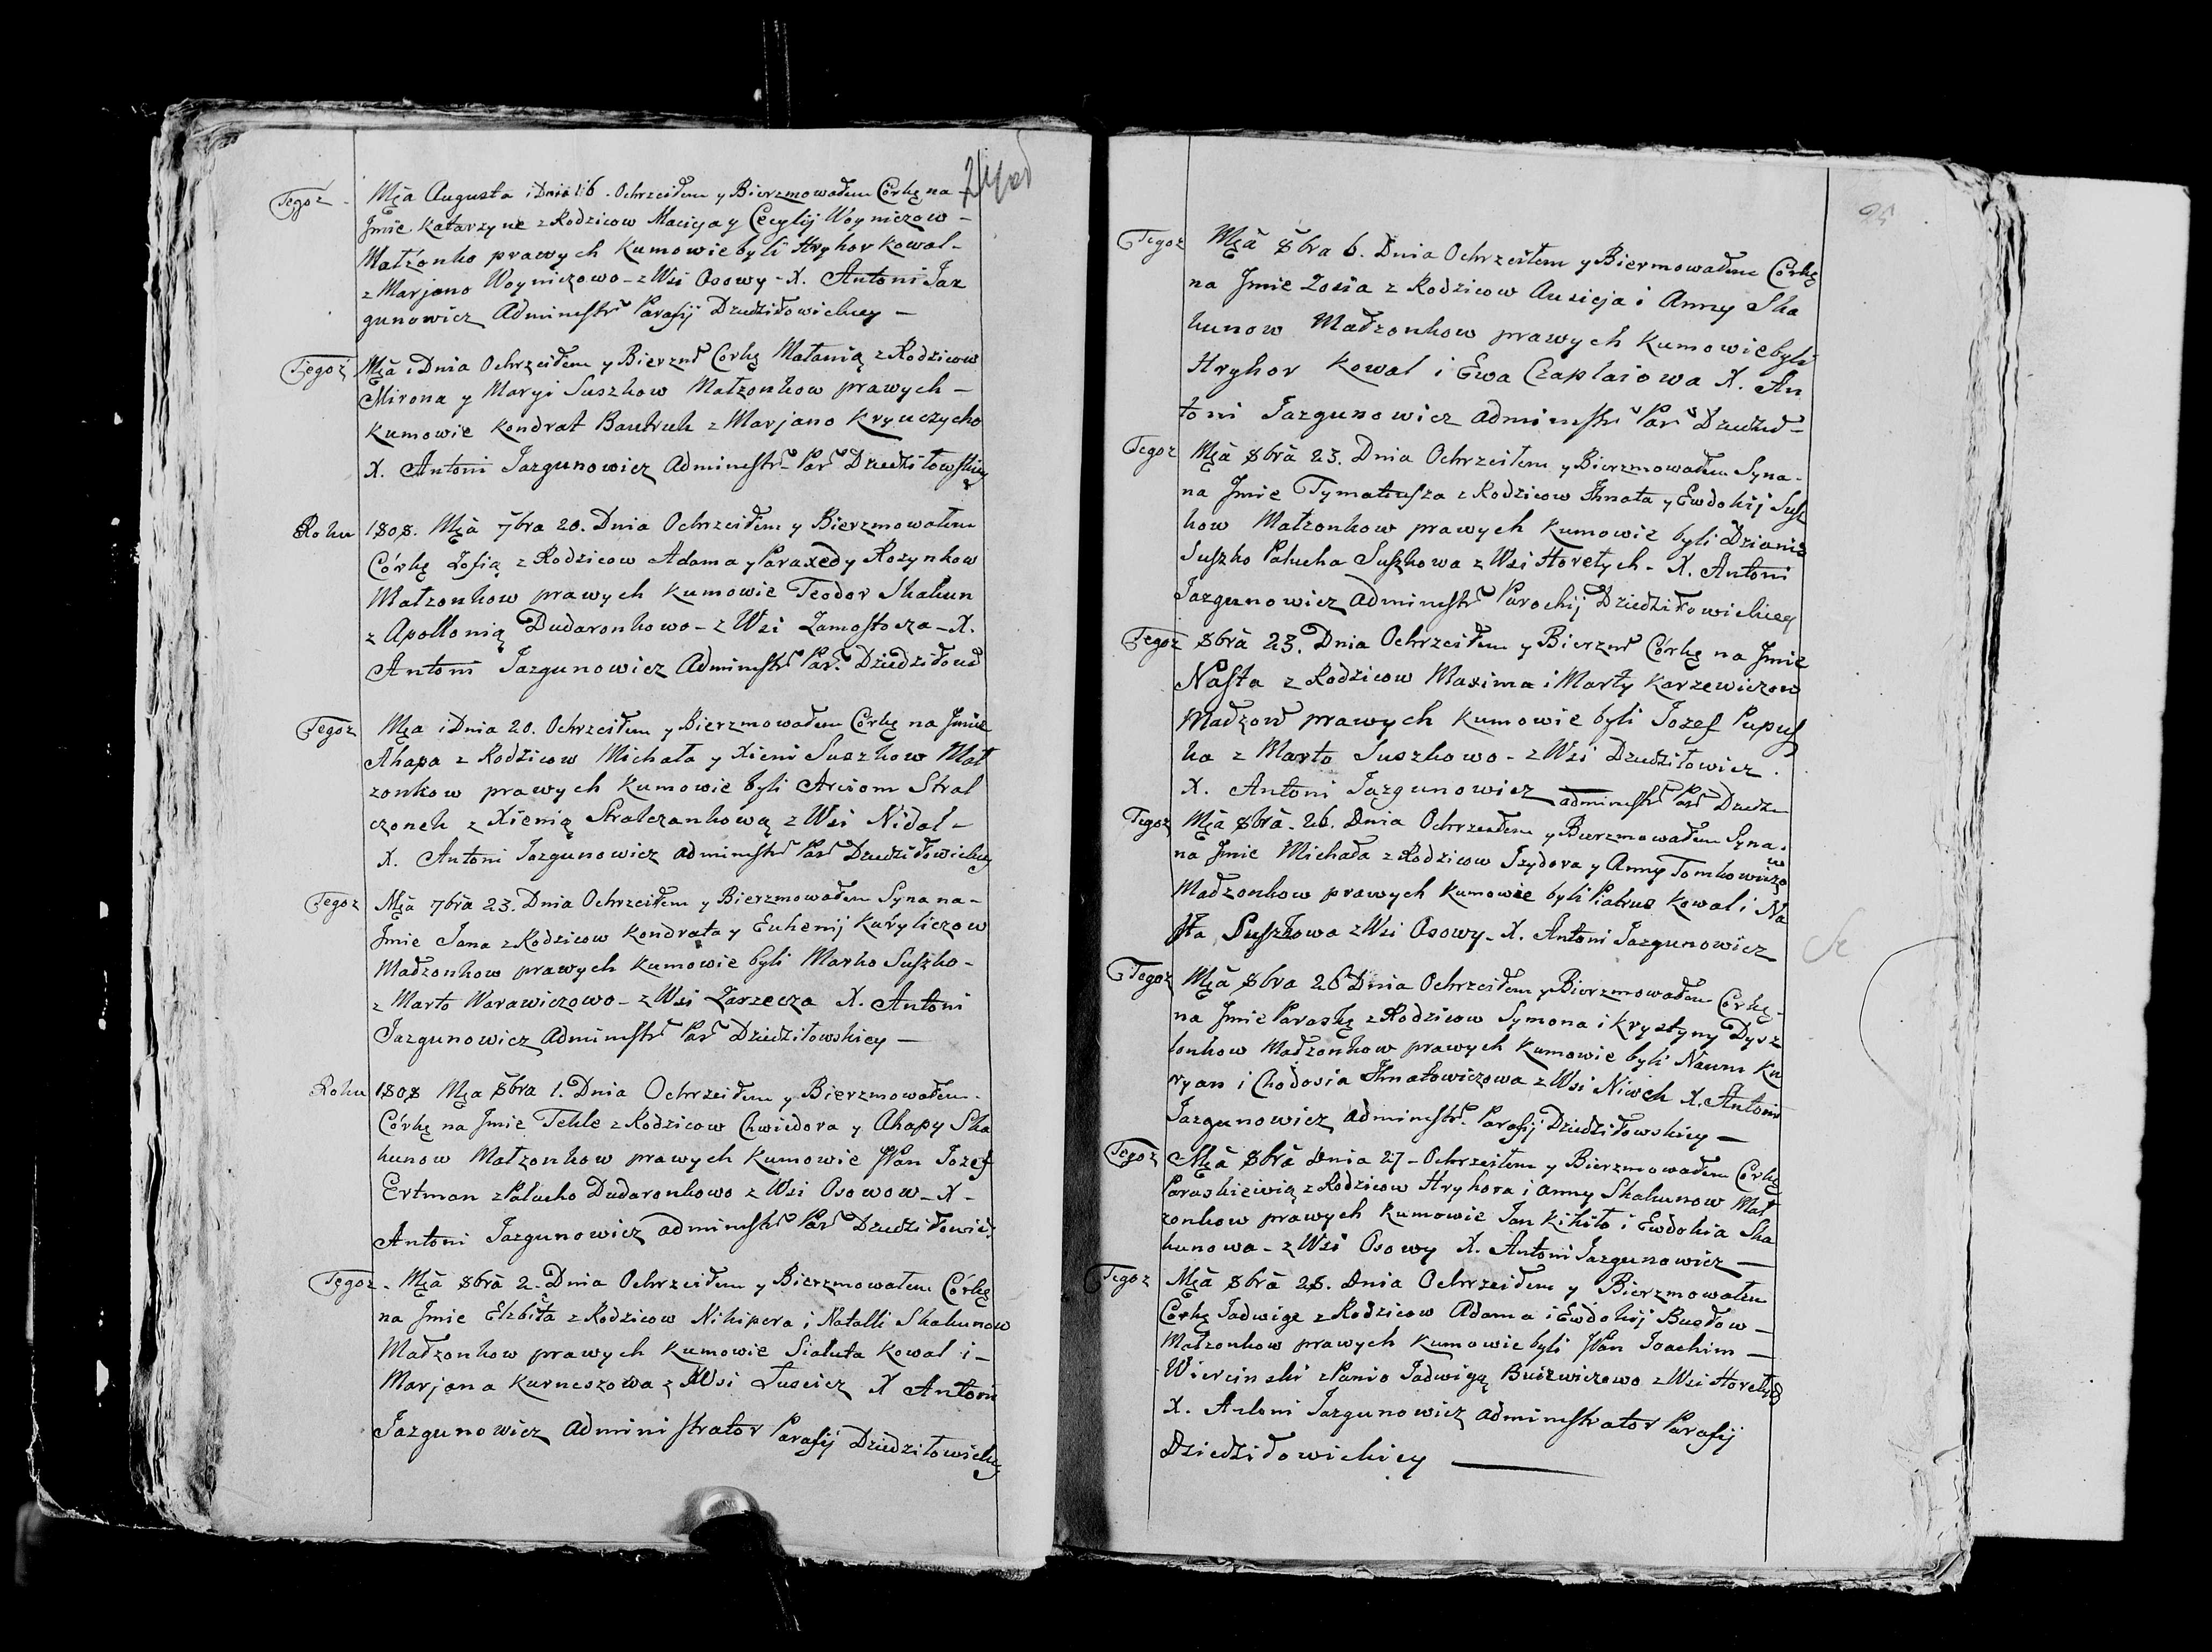 Tegoż Mca Augusta i Dnia 16. Ochrzciłem y Bierzmowałem Córkę na
Jmie Katarzyne z Rodzicow Macieja y Cecylij Woyniczow
Małżonko prawych Kumowie byli Hryhor Kowal
z Marjano Woyniczowo z Wsi Osowy X. Antoni Jaz
gunowicz Administr Parafij Dziedziłowickiey
Tegoż Mca i Dnia Ochrzciłem y Bierzm Corkę Małanią z Rodzicow
Mirona y Maryi Suszkow Małżonkow prawych
Kumowie Kondrat z Marjano Kryuczycho
X. Antoni Jazgunowicz Administr Par Dziedziłowskiey
Roku 1808. Mca 7bra 20. Dnia Ochrzciłem y Bierzmowałem
Córkę Zofią z Rodzicow Adama y Paraxedy Rozynkow
Małzonkow prawych Kumowie Teodor Skakun
z Apollonią Dudaronkowo z Wsi Zamostocza X.
Antoni Jazgunowicz Administr Par. Dziedziłow
Tegoz Mca i Dnia 20. Ochrzciłem y Bierzmowałem Córkę na Jmie
Ahapa z Rodzicow Michała y Xieni Suszkow Mał
zonkow prawych Kumowie byli Arciom Stral
czonek z Xienią Stralczankową z Wsi Nidal
X. Antoni Jazgunowicz Administr Par Dziedziłowickiey
Tegoz Mca 7bra 23. Dnia Ochrzciłem y Bierzmowałem Syna na
Jmie Jana z Rodzicow Kondrata y Euhenij Kuryliczow
Małzonkow prawych Kumowie byli Marko Suszko
z Marto Warawiczowo z Wsi Zarzecza X. Antoni
Jazgunowicz Administr Par Dziedziłowskiey
Roku 1808 Mca 8bra 1. Dnia Ochrzciłem y Bierzmowałem
Córkę na Jmie Tekle z Rodzicow Chwiedora y Ahapy Ska
kunow Małzonkow prawych Kumowie JPan Jozef
Ertman z Palucho Dudaronkowo z Wsi Osowow X
Antoni Jazgunowicz administr Par Dziedziłowic
Tegoz Mca 8bra 2. Dnia Ochrzciłem y Bierzmowałem Córkę
na Jmie Elzbieta z Rodzicow Nikipera i Natalli Skakunow
Małzonkow prawych Kumowie Siałuta Kowal i
Marjana Kurneszowa z Wsi Tuscicz X Antoni
Jazgunowicz Administrator Parafij Dziedziłowickiey
25
Tegoz Mca 8bra 6. Dnia Ochrzciłem y Biermowałem Córkę
na Jmie Zosia z Rodzicow Ausieja i Anny Ska
kunow Małzonkow prawych Kumowie byli
Hryhor Kowal i Ewa Czaplaiowa X. An
toni Jazgunowicz administr Par Dziedził
Tegoz Mca 8bra 23. Dnia Ochrzciłem y Bierzmowałem Syna
na Jmie Tymateusza z Rodzicow Jhnata y Ewdokij Susz
kow Małzonkow prawych Kumowie byli Dzianis
Suszko Palucha Suszkowa z Wsi Horełych X. Antoni
Jazgunowicz administr Parochij Dziedziłowickiey
Tegoz 8bra 23. Dnia Ochrzciłem y Bierzm Córkę na Jmie
Nasta z Rodzicow Maxima i Marty Karzewiczow
Małzow prawych Kumowie byli Jozef Pupuß
ka z Marto Suszkowo z Wsi Dziedziłowicz
X. Antoni Jazgunowicz administr Par Dziedz
Tegoz Mca 8bra 26. Dnia Ochrzciłem y Bierzmowałem Syna
na Jmie Michała z Rodzicow Jzydora y Anny Tomkowiczow
Małzonkow prawych Kumowie byli Piatrus Kowal i Na
sta Suszkowa z Wsi Osowy X. Antoni Jazgunowicz
Tegoz Mca 8bra 26 Dnia Ochrzciłem y Bierzmowałem Córkę
na Jmie Paraskę z Rodzicow Symona i Krystyny Dysz
lonkow Małzonkow prawych Kumowie byli Naum Ku
ryan i Chodosia Jhnatowiczowa z Wsi Niwek X. Antoni
Jazgunowicz administr. Parafij Dziedziłowskiey
Tegoz Mca 8bra Dnia 27 Ochrzciłem y Bierzmowałem Córkę
Paraskiewią z Rodzicow Hryhora i Anny Skakunow Mał
zonkow prawych Kumowie Jan Kikiło i Ewdokia Ska
kunowa z Wsi Osowy X. Antoni Jazgunowicz
Tegoz Mca 8bra 28. Dnia Ochrzciłem y Bierzmowałem
Córkę Jadwige z Rodzicow Adama i Ewdokij Busłow
Małzonkow prawych Kumowie byli JPan Joachim
Wiercinski z Panio Jadwigą Buikwiczowo z Wsi Horełych
X. Antoni Jazgunowicz administrator Parafij
Dziedziłowickiey